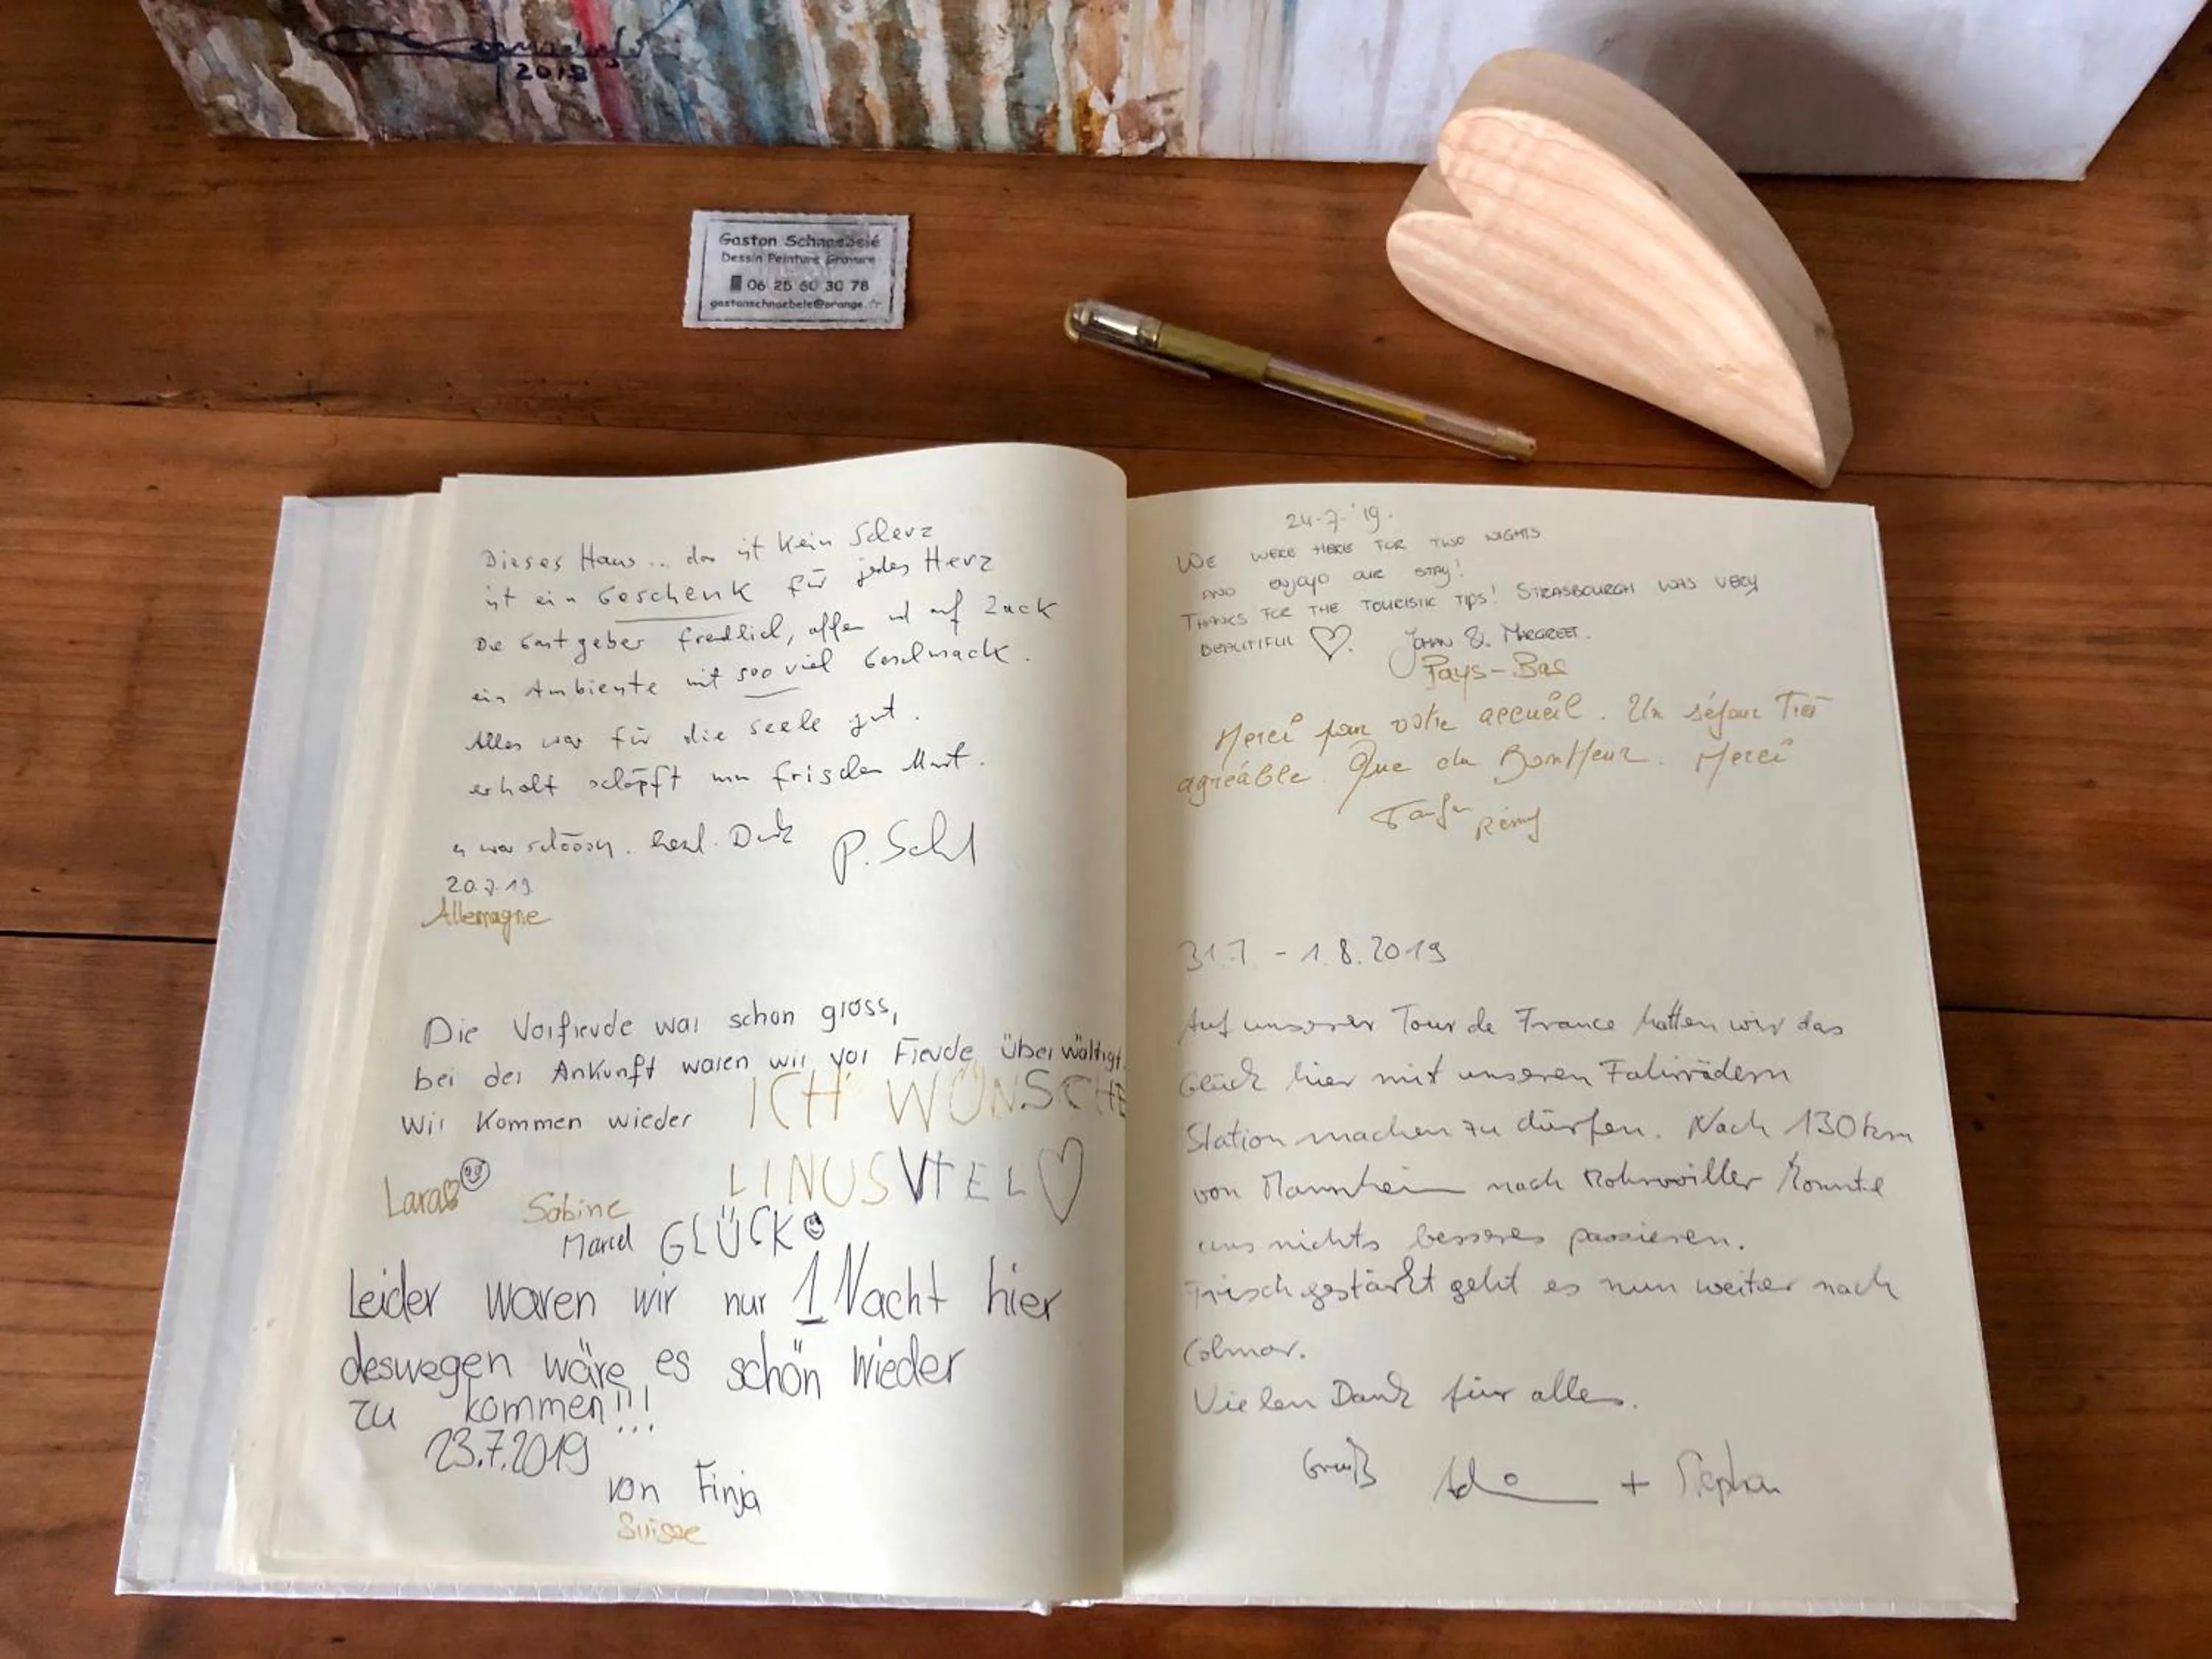 2018
Gaston Schnaebelé
Dessin Peinture Gravure
06 25 60 30 78
gastonschnaebele@orange.fr
Dieses Haus... das ist kein Scherz
ist ein Geschenk für jedes Herz
Die Gastgeber friedlich, offen und auf Zack
ein Ambiente mit soo viel Geschmack.
Alles war für die Seele gut.
erholt schöpft man frischen Mut.
es war schööön. herzl. Dank
20.7.19
Allemagne
Die Vorfreude war schon gross,
bei der Ankunft waren wir vor Freude überwältigt.
Wir kommen wieder
ICH WÜNSCHE
LINUS VIEL
GLÜCK
Lara
Sabine
Marcel
Leider waren wir nur 1 Nacht hier
deswegen wäre es schön wieder
zu kommen!!!
23.7.2019
von Finja
Suisse
24-7-'19.
WE WERE HERE FOR TWO NIGHTS
AND ENJOYD OUR STAY!
THANKS FOR THE TOURISTIC TIPS! STRASBOURGH WAS VERY
BEAUTIFUL. JOHAN & MARGREET.
Pays-Bas
Merci pour votre accueil. Un séjour Très
agréable. Que du Bonheur. Merci
Rémy
31.7. - 1.8.2019
Auf unserer Tour de France hatten wir das
Glück hier mit unseren Fahrrädern
Station machen zu dürfen. Nach 130 km
von Mannheim nach Rohrwiller konnte
uns nichts besseres passieren.
Frisch gestärkt geht es nun weiter nach
Colmar.
Vielen Dank für alles.
Gruß + Stephan